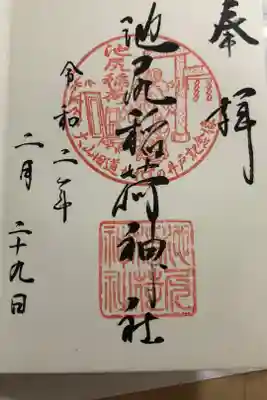 奉拝
池尻稲荷神社
令和二年
二月二十九日
池尻稲荷
大山旧道
池尻稲荷神社